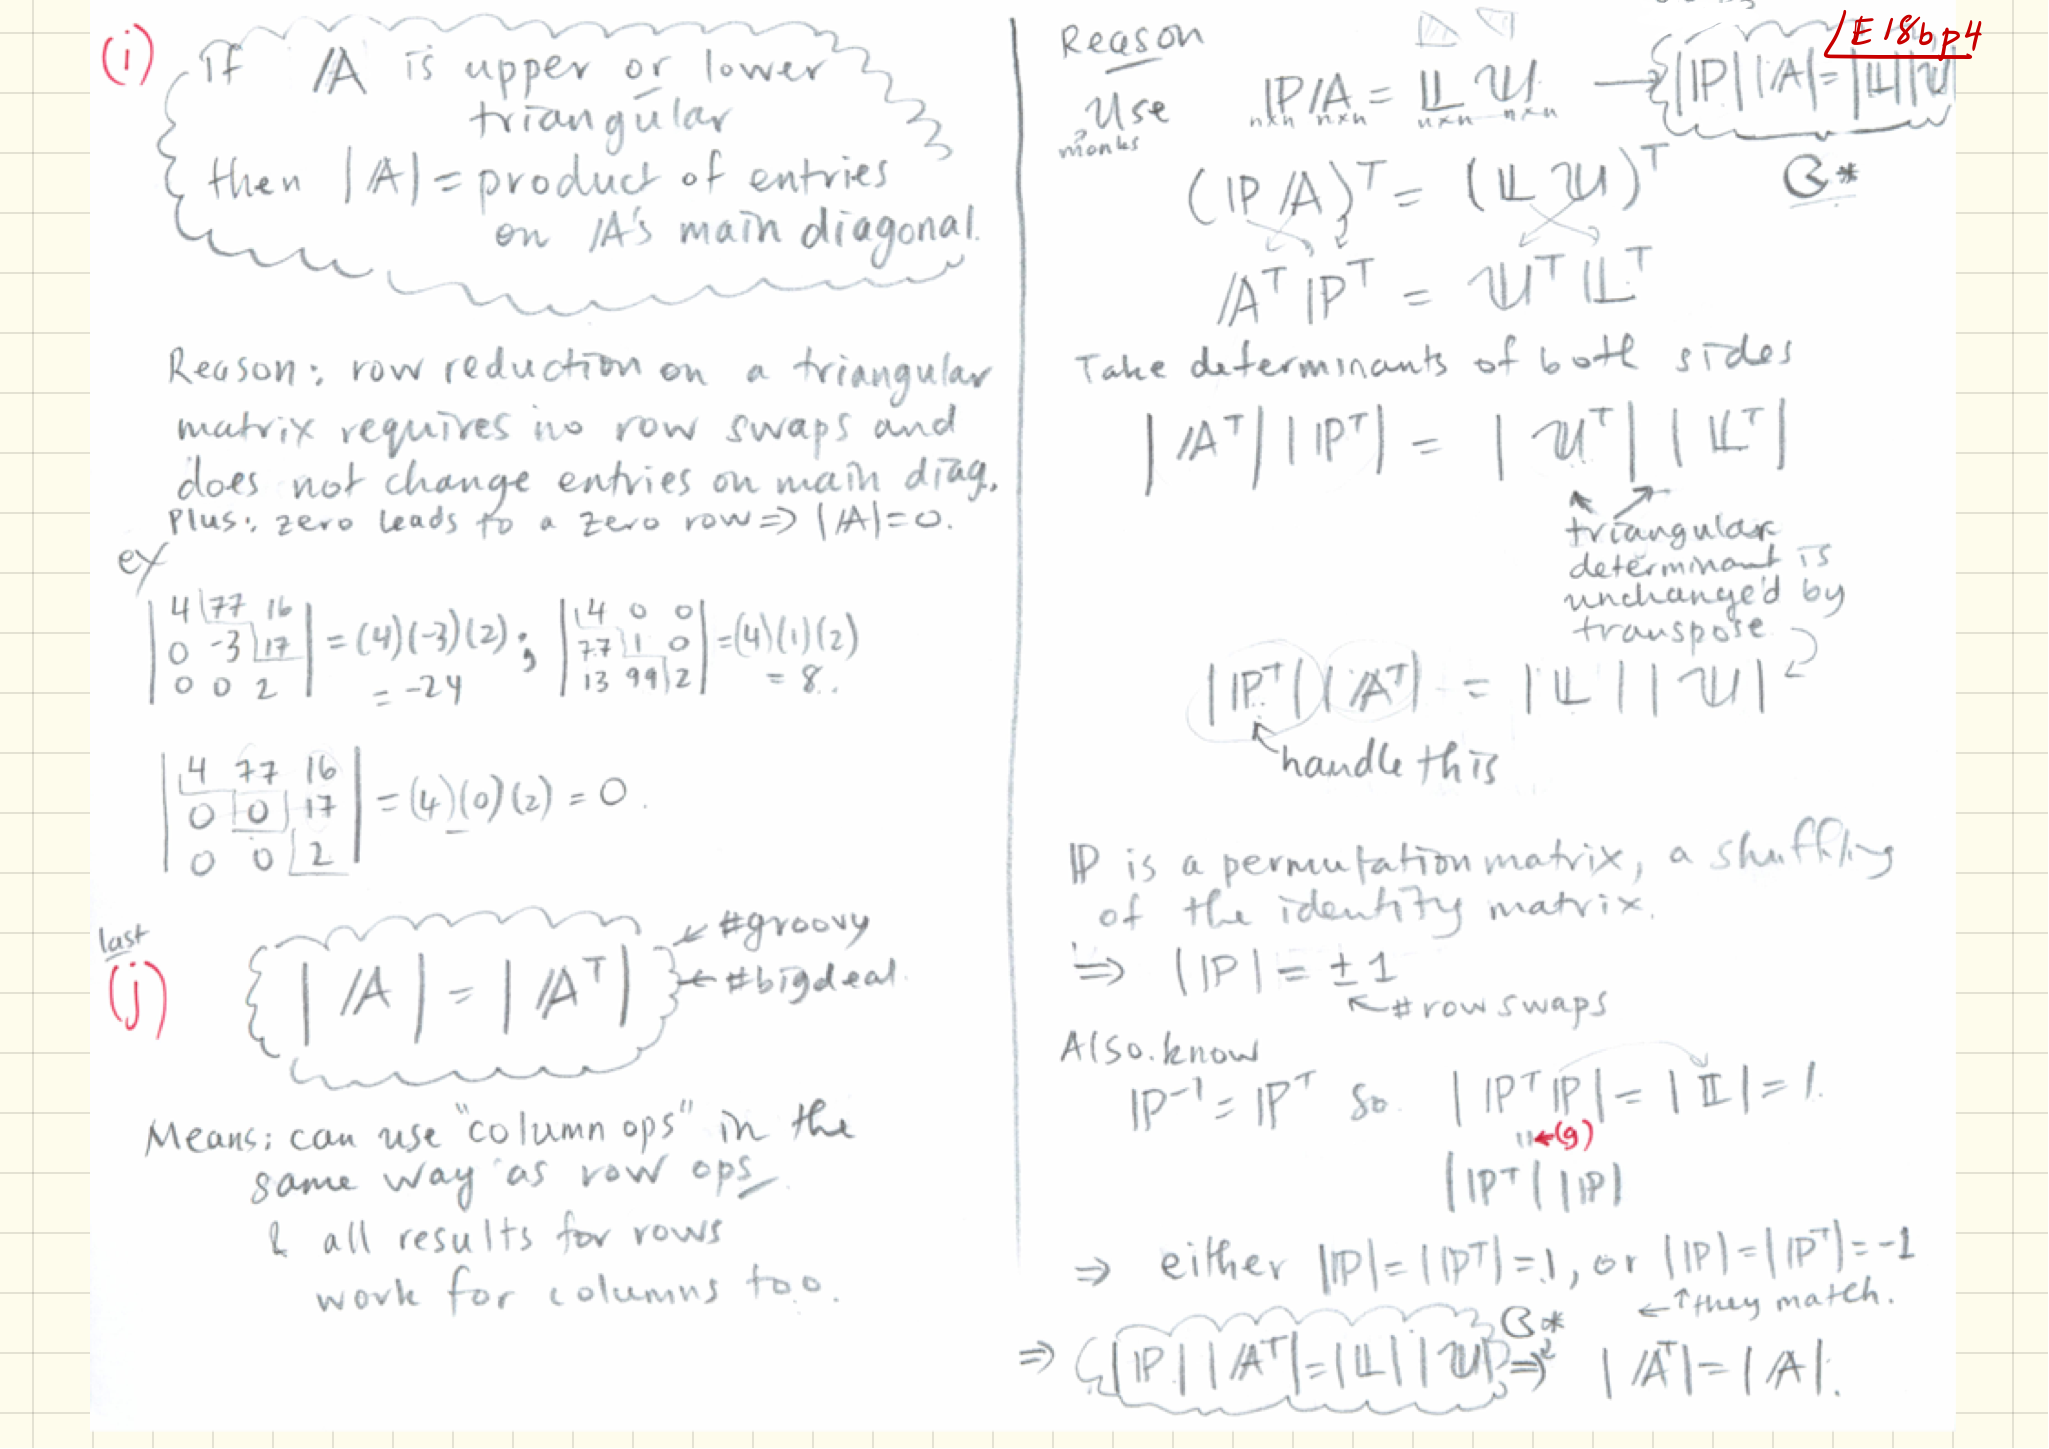 (i) If 𝔸 is upper or lower
triangular
then |𝔸| = product of entries
on 𝔸's main diagonal.
Reason: row reduction on a triangular
matrix requires no row swaps and
does not change entries on main diag.
Plus: zero leads to a zero row ⇒ |𝔸| = 0.
ex
| 4 77 16 | | 4 0 0 |
| 0 -3 17 | = (4)(-3)(2) ; | 77 1 0 | = (4)(1)(2)
| 0 0 2 | = -24 | 13 99 2 | = 8.
| 4 77 16 |
| 0 0 17 | = (4)(0)(2) = 0.
| 0 0 2 |
last
(j) |𝔸| = |𝔸ᵀ|
← #groovy
← #bigdeal.
Means: can use "column ops" in the
same way as row ops
& all results for rows
work for columns too.
E18b p4
Reason
Use ℙ𝔸 = 𝕃𝕌 → |ℙ||𝔸| = |𝕃||𝕌|
n×n n×n n×n n×n
monks
(ℙ𝔸)ᵀ = (𝕃𝕌)ᵀ
𝔸ᵀℙᵀ = 𝕌ᵀ𝕃ᵀ
Take determinants of both sides
|𝔸ᵀ||ℙᵀ| = |𝕌ᵀ||𝕃ᵀ|
triangular
determinant is
unchange'd by
transpose
|ℙᵀ||𝔸ᵀ| = |𝕃||𝕌|
handle this
ℙ is a permutation matrix, a shuffling
of the identity matrix.
⇒ |ℙ| = ±1
↖ # row swaps
Also know
ℙ⁻¹ = ℙᵀ so |ℙᵀℙ| = |𝕀| = 1.
" ← (g)
|ℙᵀ||ℙ|
⇒ either |ℙ| = |ℙᵀ| = 1, or |ℙ| = |ℙᵀ| = -1
← ↑ they match.
⇒ |ℙ||𝔸ᵀ| = |𝕃||𝕌| ⇒ |𝔸ᵀ| = |𝔸|.